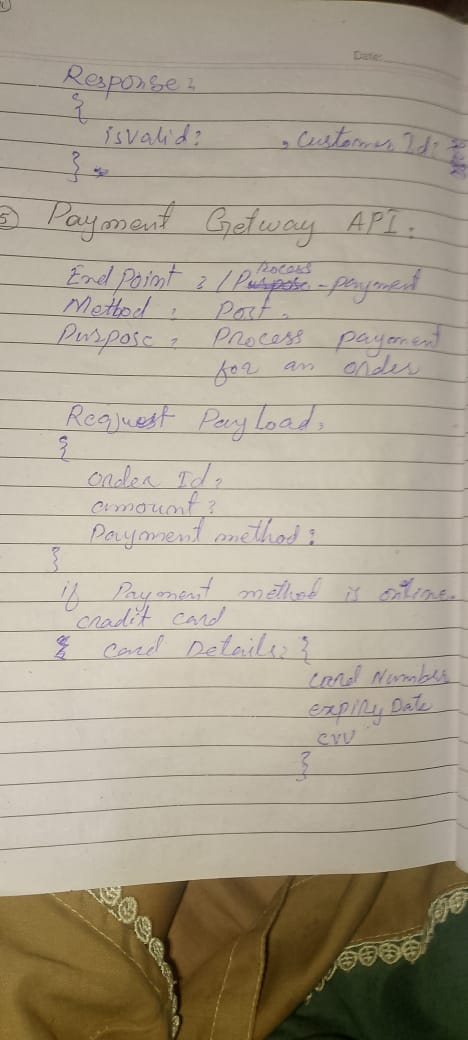 Date:
Response:
{
isvalid: , Customer Id:
}
5 Payment Getway API:
End Point : /Process-payment
Method : Post.
Purpose : Process payment
for an order
Request PayLoad:
{
order Id:
amount :
Payment method :
}
if Payment method is online.
cradit card
Card Details: {
Card Number
expiry Date
cvv
}